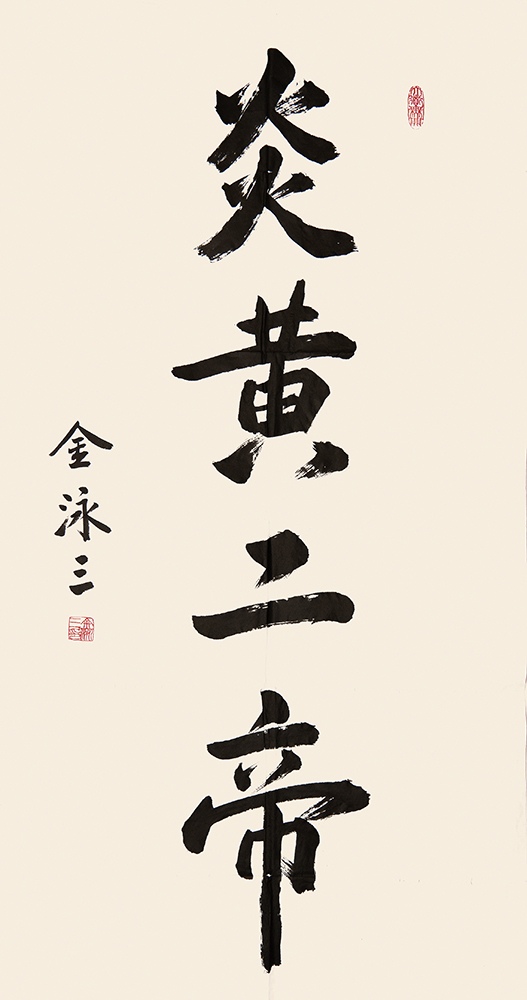 炎黄二帝
金泳三